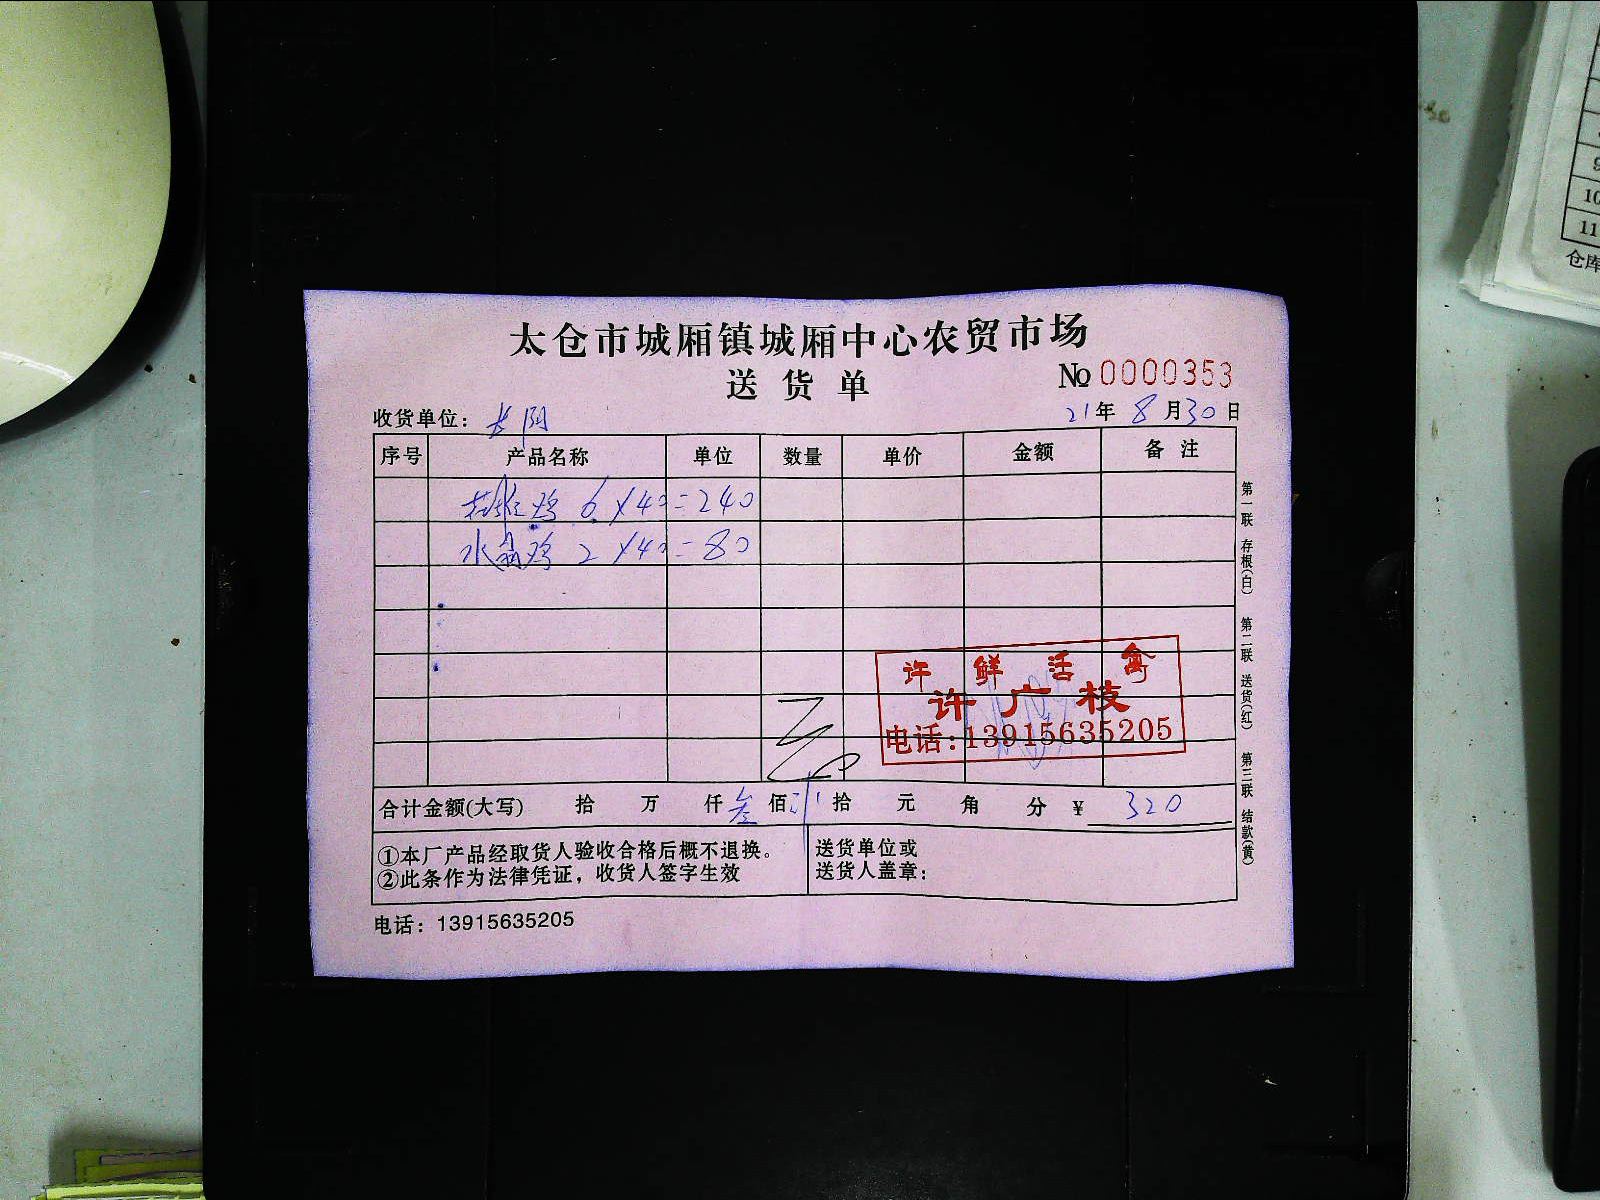 太仓市城厢镇城厢中心农贸市场
送货单
№ 0000353
收货单位：
21年 8月30日
序号 产品名称 单位 数量 单价 金额 备注
鸡 6×40=240
水晶鸡 2×40=80
许鲜活禽
许广枝
电话：13915635205
合计金额(大写) 拾 万 仟叁佰 拾 元 角 分 ¥ 320
①本厂产品经取货人验收合格后概不退换。
②此条作为法律凭证，收货人签字生效
送货单位或
送货人盖章：
电话：13915635205
第一联 存根(白) 第二联 送货(红) 第三联 结款(黄)
9
10
11
仓库